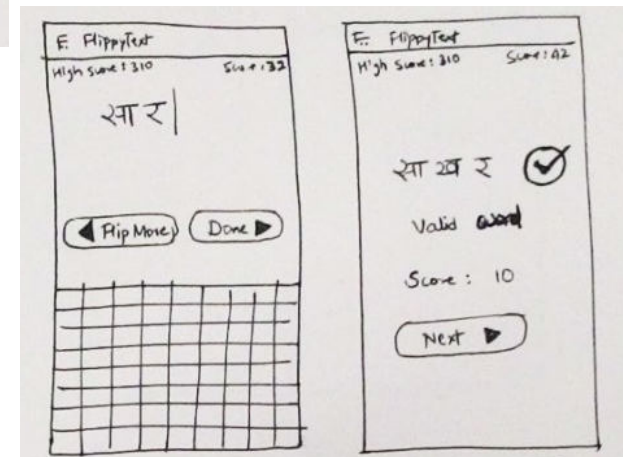 F. FlippyText
High Score: 310 Score: 32
सा र
Flip More
Done
F. FlippyText
High Score: 310 Score: 42
सा ख र
Valid word
Score: 10
Next